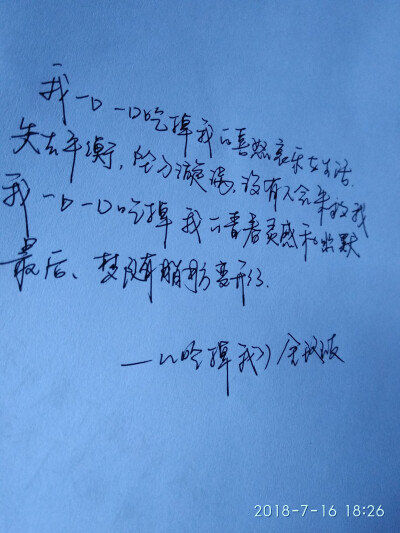 我一口一口吃掉我的喜怒哀乐与生活
失去平衡，坠了漩涡，没有人会来救我
我一口一口吃掉我的青春灵感和幽默
最后、梦随脂肪离开了
一口吃掉我
2018-7-16 18:26